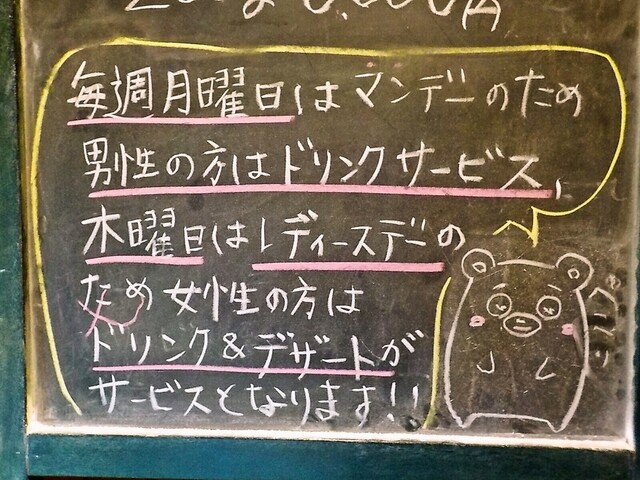 毎週月曜日はマンデーのため
男性の方はドリンクサービス、
木曜日はレディースデーの
ため女性の方は
ドリンク&デザートが
サービスとなります!!